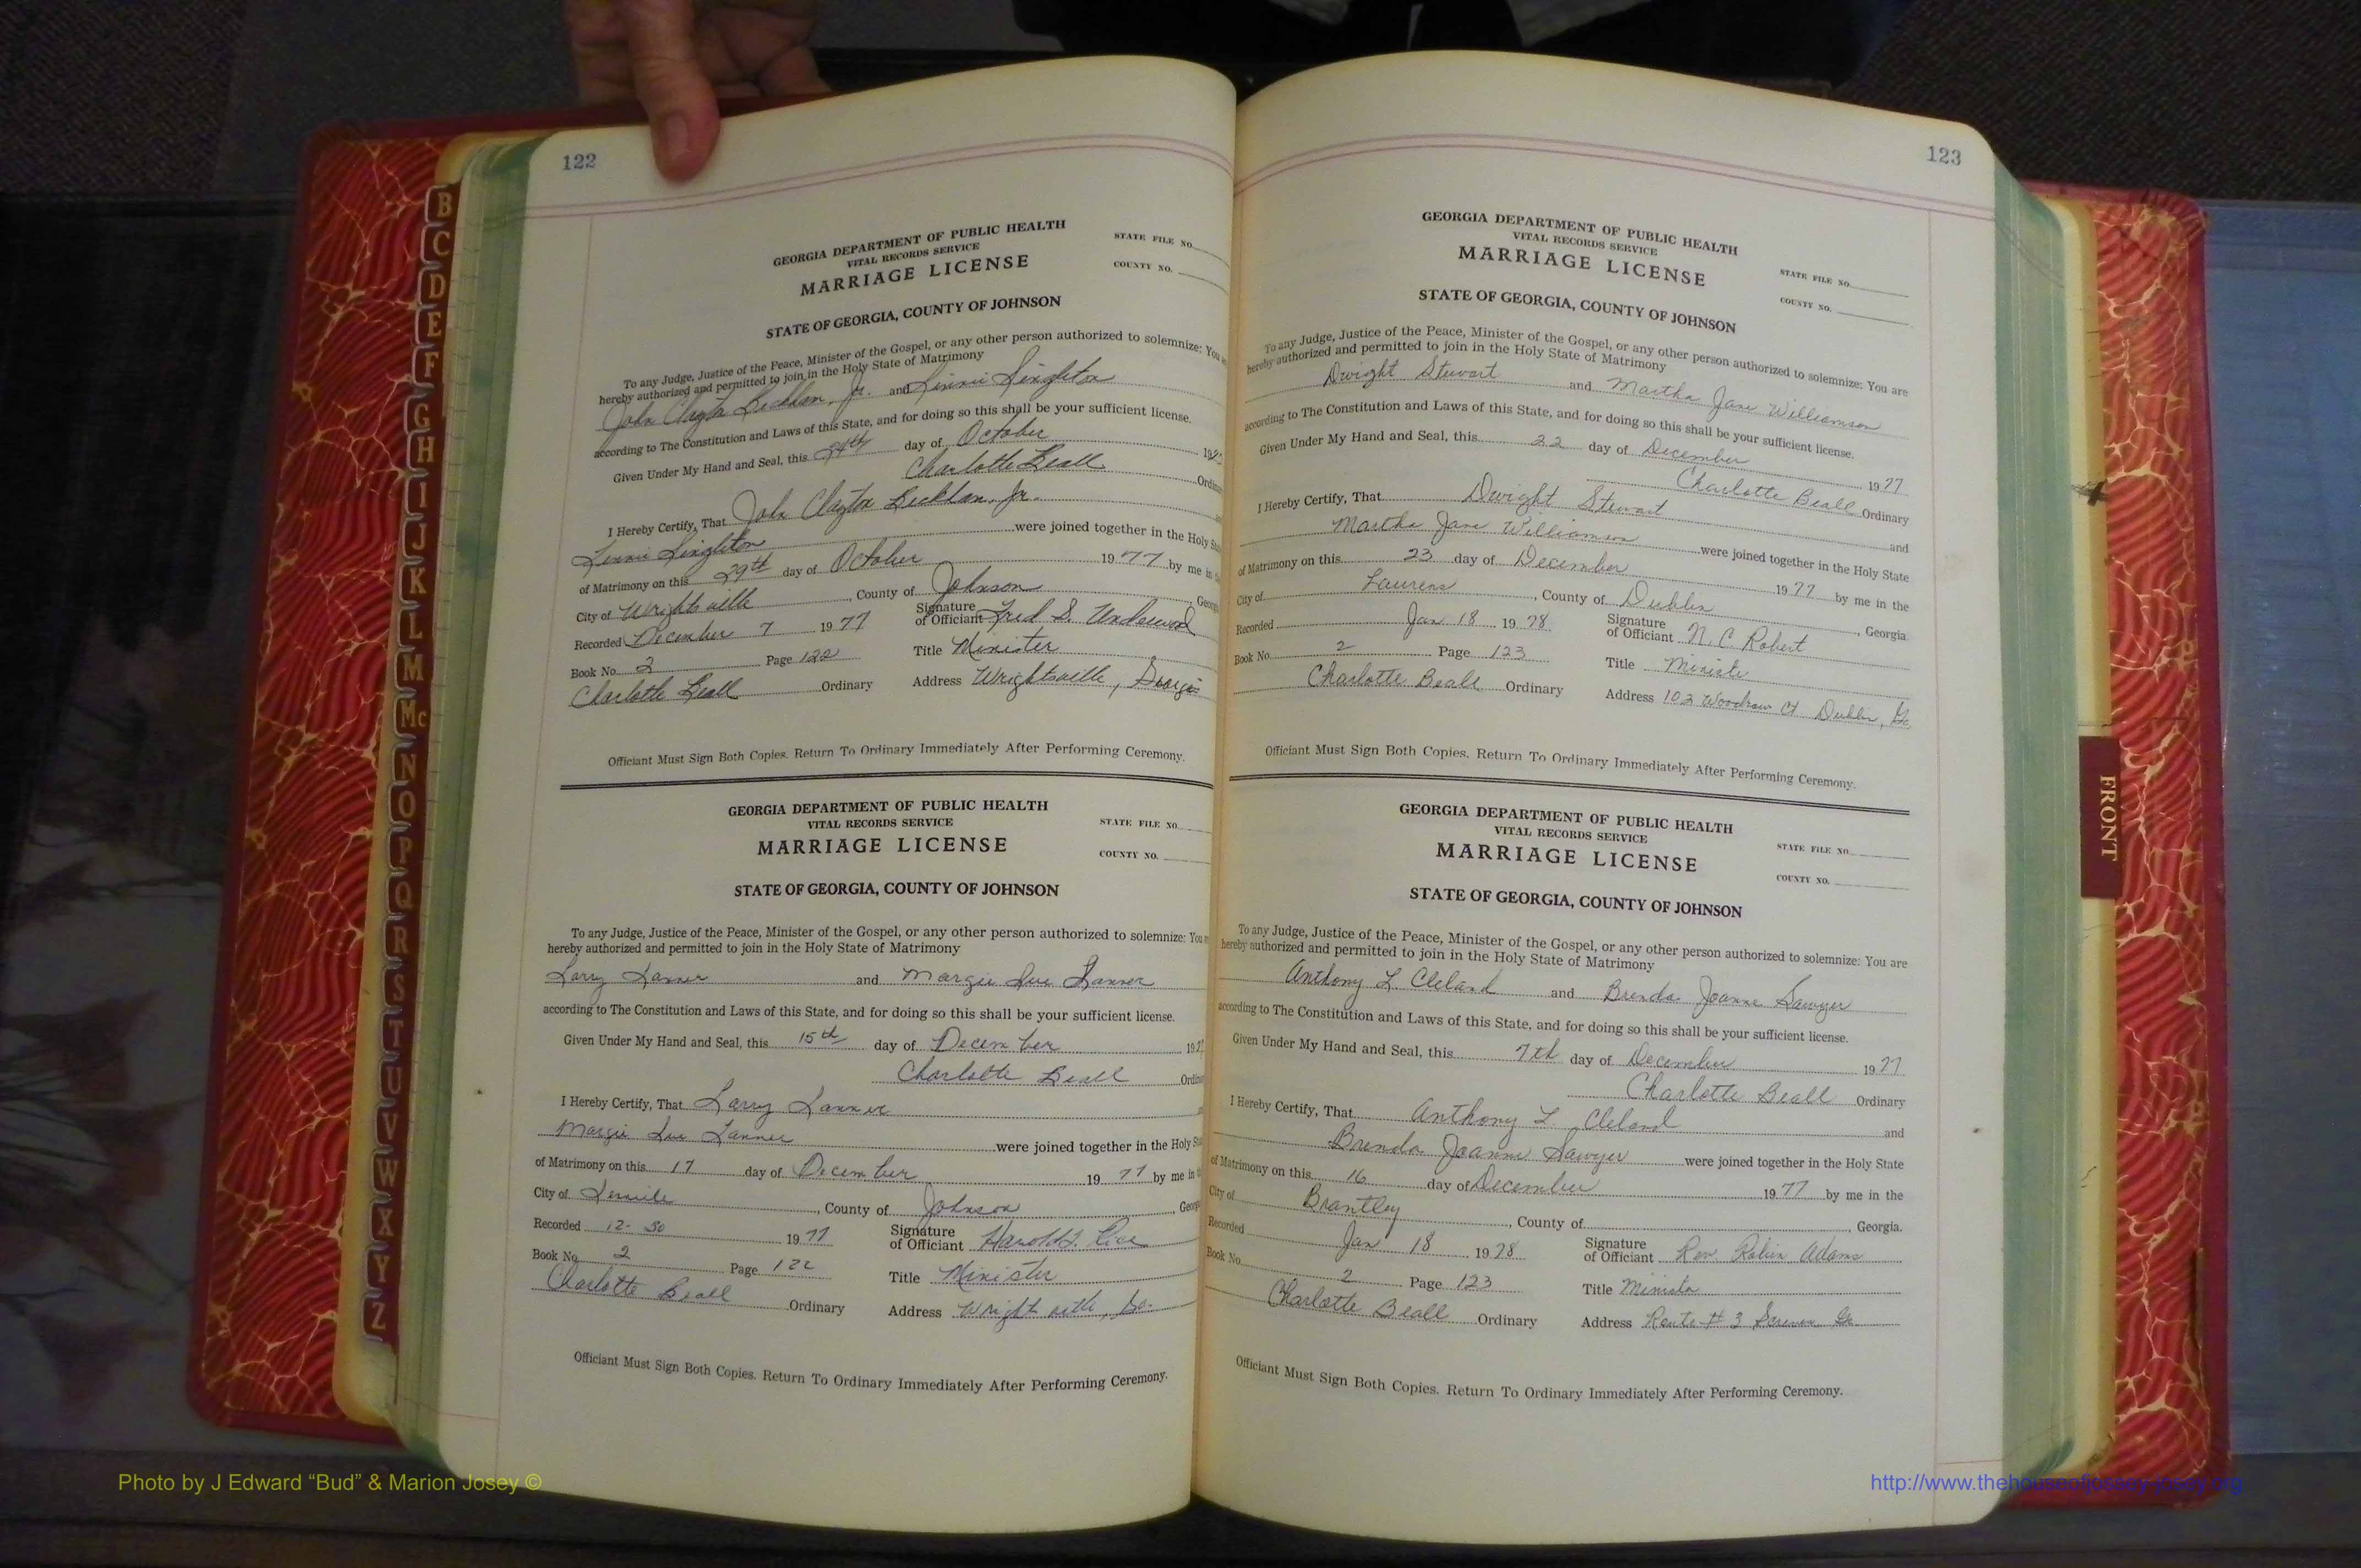 122
GEORGIA DEPARTMENT OF PUBLIC HEALTH
VITAL RECORDS SERVICE
MARRIAGE LICENSE
STATE FILE NO.
COUNTY NO.
STATE OF GEORGIA, COUNTY OF JOHNSON
To any Judge, Justice of the Peace, Minister of the Gospel, or any other person authorized to solemnize: You
hereby authorized and permitted to join in the Holy State of Matrimony
John Clayton Jr. and Singleton
according to The Constitution and Laws of this State, and for doing so this shall be your sufficient license.
Given Under My Hand and Seal, this day of October 19
Charlotte Beall Ordin
I Hereby Certify, That John Clayton Jr.
Singleton were joined together in the Holy
of Matrimony on this 29th day of October 1977 by me in
City of Wrightsville, County of Johnson, Georg
Recorded December 7 1977 Signature of Officiant Fred S. Underwood
Book No. 2 Page 122 Title Minister
Charlotte Beall Ordinary Address Wrightsville, Georgia
Officiant Must Sign Both Copies. Return To Ordinary Immediately After Performing Ceremony.
GEORGIA DEPARTMENT OF PUBLIC HEALTH
VITAL RECORDS SERVICE
MARRIAGE LICENSE
STATE FILE NO.
COUNTY NO.
STATE OF GEORGIA, COUNTY OF JOHNSON
To any Judge, Justice of the Peace, Minister of the Gospel, or any other person authorized to solemnize: You
hereby authorized and permitted to join in the Holy State of Matrimony
Larry Lanner and Margie Sue Lanner
according to The Constitution and Laws of this State, and for doing so this shall be your sufficient license.
Given Under My Hand and Seal, this 15th day of December 19
Charlotte Beall Ordin
I Hereby Certify, That Larry Lanner
Margie Sue Lanner were joined together in the Holy
of Matrimony on this 17 day of December 1977 by me in
City of, County of Johnson, Georg
Recorded 12-30 1977 Signature of Officiant Harold Rice
Book No. 2 Page 122 Title Minister
Charlotte Beall Ordinary Address Wrightsville, Ga.
Officiant Must Sign Both Copies. Return To Ordinary Immediately After Performing Ceremony.
123
GEORGIA DEPARTMENT OF PUBLIC HEALTH
VITAL RECORDS SERVICE
MARRIAGE LICENSE
STATE FILE NO.
COUNTY NO.
STATE OF GEORGIA, COUNTY OF JOHNSON
To any Judge, Justice of the Peace, Minister of the Gospel, or any other person authorized to solemnize: You are
hereby authorized and permitted to join in the Holy State of Matrimony
Dwight Stewart and Martha Jane Williamson
according to The Constitution and Laws of this State, and for doing so this shall be your sufficient license.
Given Under My Hand and Seal, this 22 day of December 1977
Charlotte Beall Ordinary
I Hereby Certify, That Dwight Stewart and
Martha Jane Williamson were joined together in the Holy State
of Matrimony on this 23 day of December 1977 by me in the
City of Laurens, County of Dublin, Georgia
Recorded Jan 18 1978 Signature of Officiant N. C. Robert
Book No. 2 Page 123 Title Ministe
Charlotte Beall Ordinary Address 102 Woodrow Ct Dublin, Ga
Officiant Must Sign Both Copies. Return To Ordinary Immediately After Performing Ceremony.
GEORGIA DEPARTMENT OF PUBLIC HEALTH
VITAL RECORDS SERVICE
MARRIAGE LICENSE
STATE FILE NO.
COUNTY NO.
STATE OF GEORGIA, COUNTY OF JOHNSON
To any Judge, Justice of the Peace, Minister of the Gospel, or any other person authorized to solemnize: You are
hereby authorized and permitted to join in the Holy State of Matrimony
Anthony L Cleland and Brenda Joanne Sawyer
according to The Constitution and Laws of this State, and for doing so this shall be your sufficient license.
Given Under My Hand and Seal, this 7th day of December 1977
Charlotte Beall Ordinary
I Hereby Certify, That Anthony L. Cleland and
Brenda Joanne Sawyer were joined together in the Holy State
of Matrimony on this 16 day of December 1977 by me in the
City of Brantley, County of Georgia.
Recorded Jan 18 1978 Signature of Officiant Rev. Robin Adams
Book No. 2 Page 123 Title Ministe
Charlotte Beall Ordinary Address Route # 3 Screven Ga
Officiant Must Sign Both Copies. Return To Ordinary Immediately After Performing Ceremony.
B
C
D
E
F
G
H
I
J
K
L
M
Mc
N
O
P
Q
R
S
T
U
V
W
X
Y
Z
FRONT
Photo by J Edward "Bud" & Marion Josey ©
http://www.thehouseofjossey-josey.org